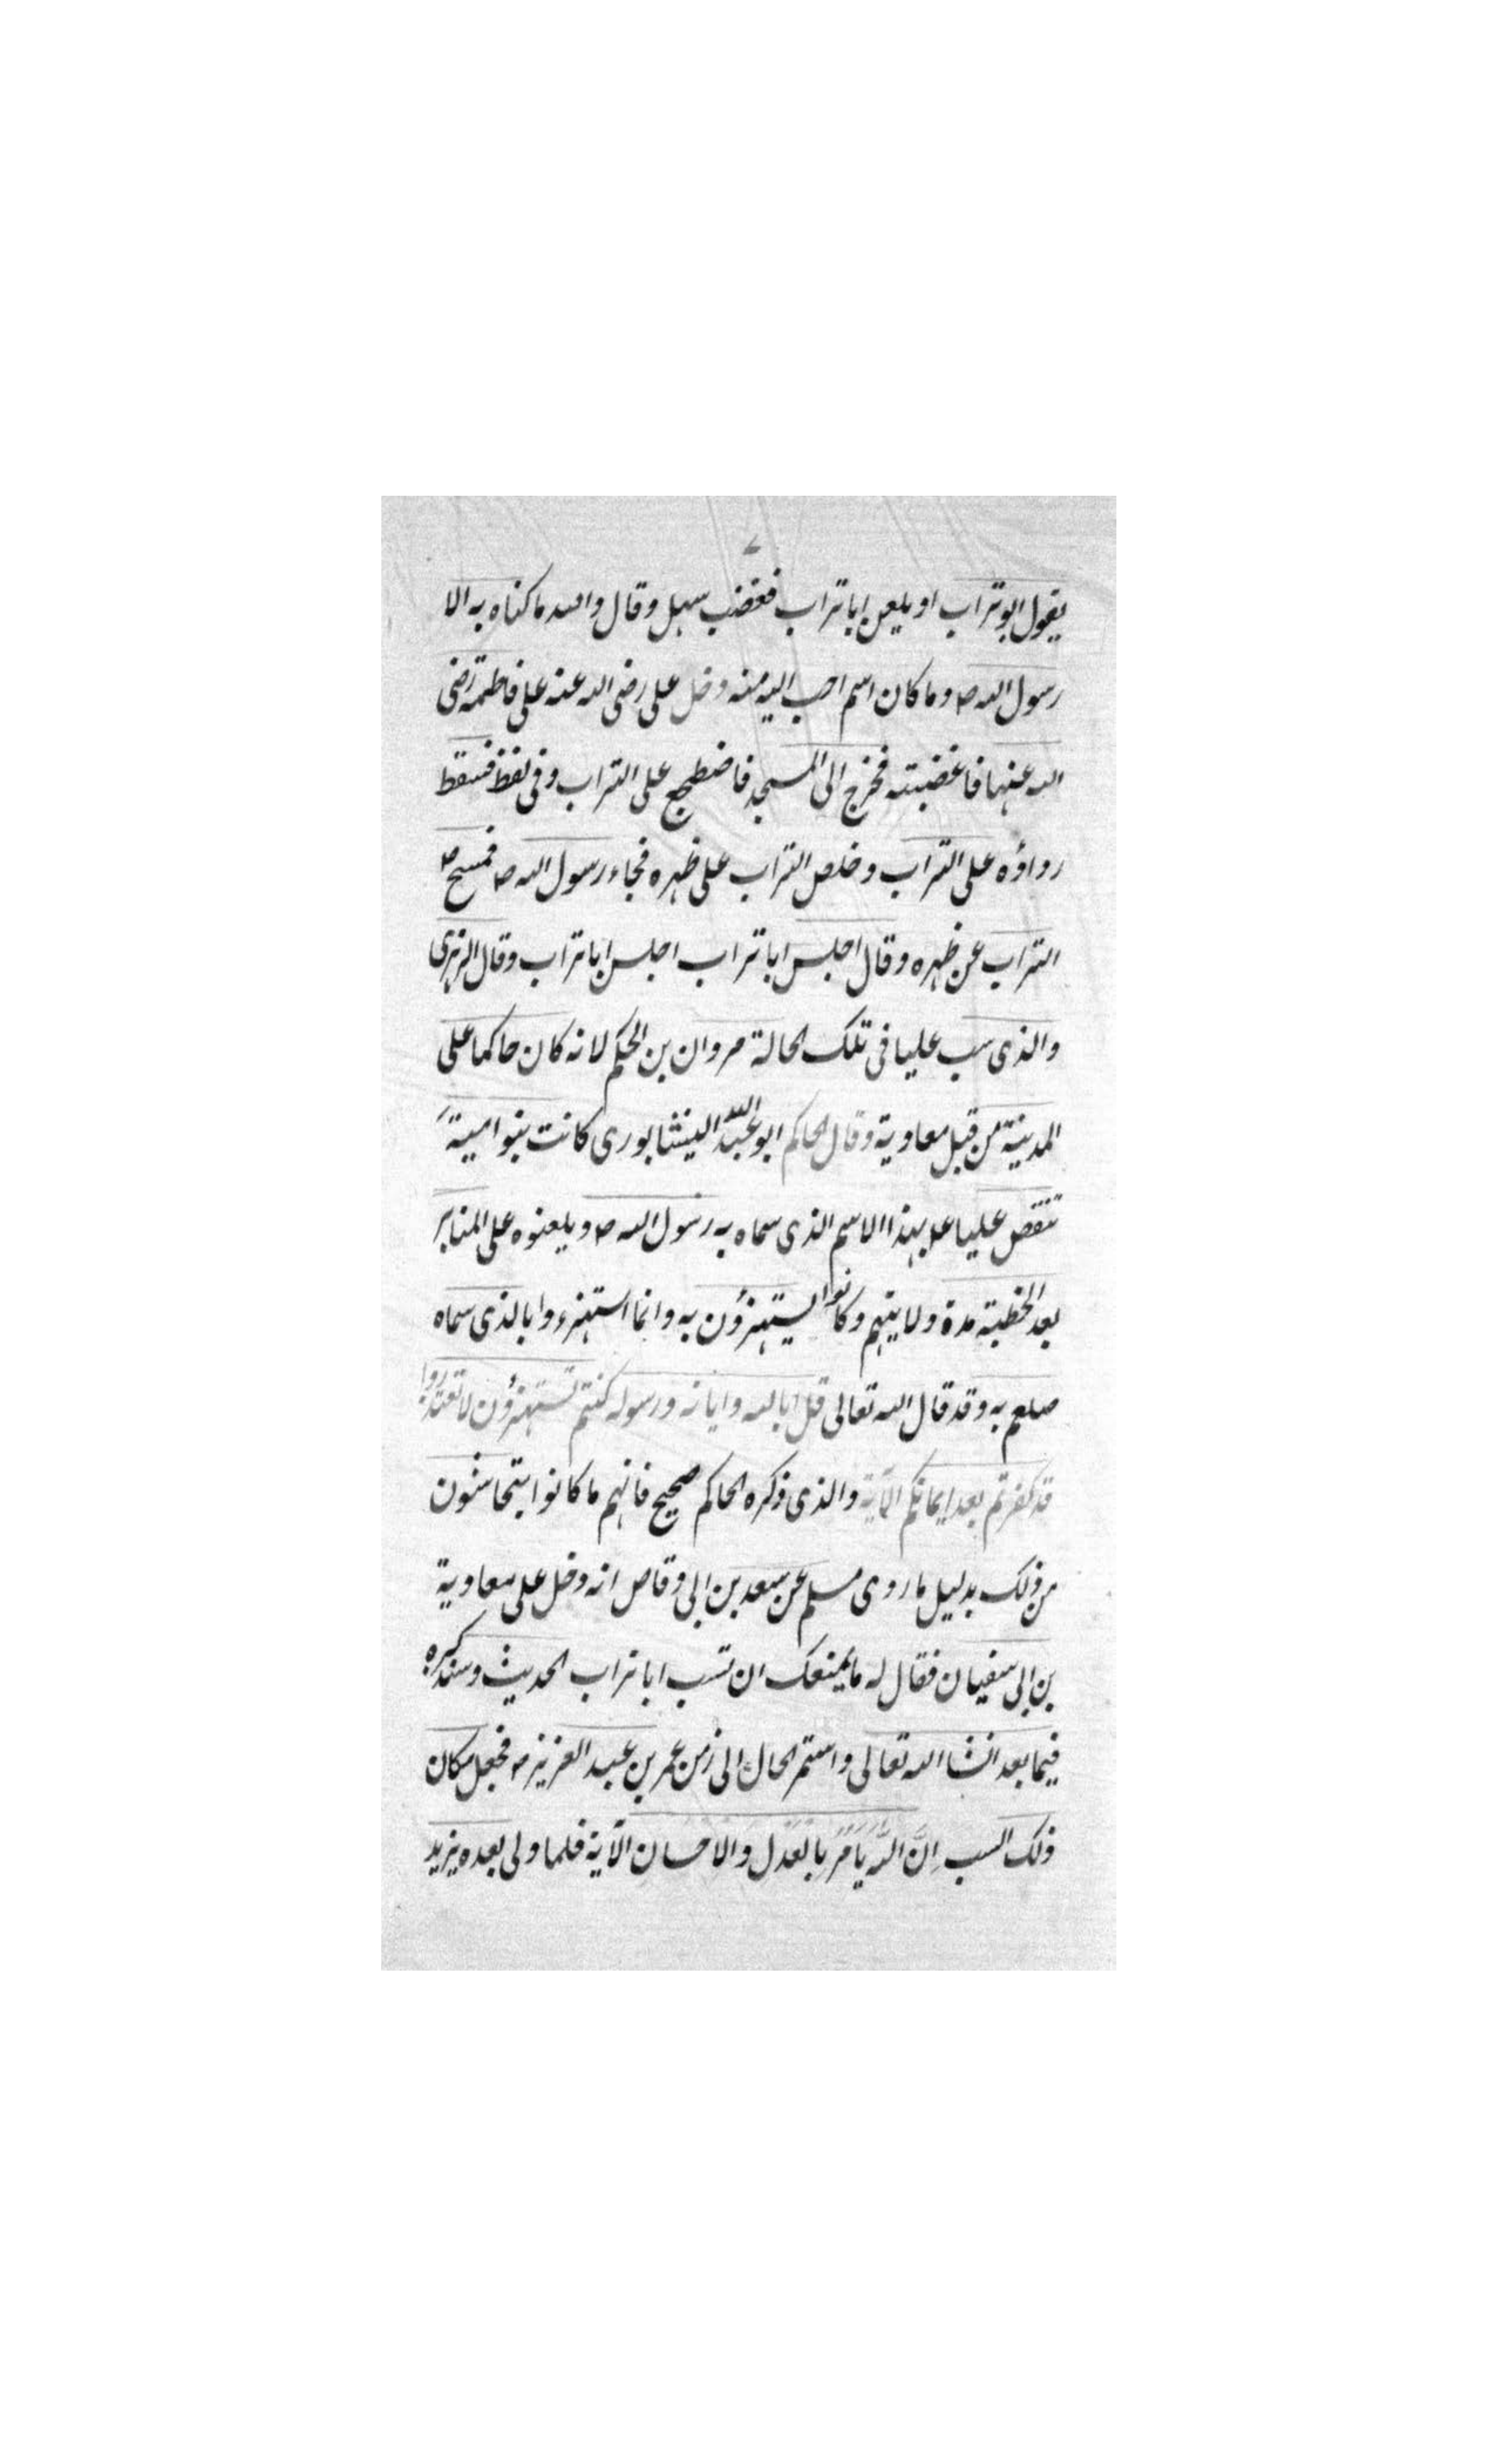 يقول ابو تراب او يلعن ابا تراب فغضب سهل وقال والله ما كناه به الا
رسول الله ص وما كان اسم احب اليه منه دخل على رضى الله عنه على فاطمة رضى
الله عنها فاغضبته فخرج الى المسجد فاضطجع على التراب وفى لفظ فسقط
رداؤه على التراب وخلص التراب على ظهره فجاء رسول الله ص فمسح ص
التراب عن ظهره وقال اجلس ابا تراب اجلس ابا تراب وقال الزهرى
والذى سب عليا فى تلك الحالة مروان بن الحكم لانه كان حاكما على
المدينة من قبل معاوية وقال الحاكم ابو عبد الله النيشابورى كانت بنو امية
تنقص عليا ع بهذا الاسم الذى سماه به رسول الله ص ويلعنوه على المنابر
بعد الخطبة مدة ولايتهم وكانوا يستهزؤن به وانما استهزءوا بالذى سماه
صلعم به وقد قال الله تعالى قل ابالله واياته ورسوله كنتم تستهزؤن لا تعتذروا
قد كفرتم بعد ايمانكم الآية والذى ذكره الحاكم صحيح فانهم ما كانوا يتحاشون
من ذلك بدليل ما روى مسلم عن سعد بن ابى وقاص انه دخل على معاوية
بن ابى سفيان فقال له ما يمنعك ان تسب ابا تراب الحديث وسنذكره
فيما بعد انشا الله تعالى واستمر الحال الى زمن عمر بن عبد العزيز فجعل مكان
ذلك السب اِنَّ اللّه يَامُر بِالعَدل وَالاحسان الآية فلما ولى بعده يزيد